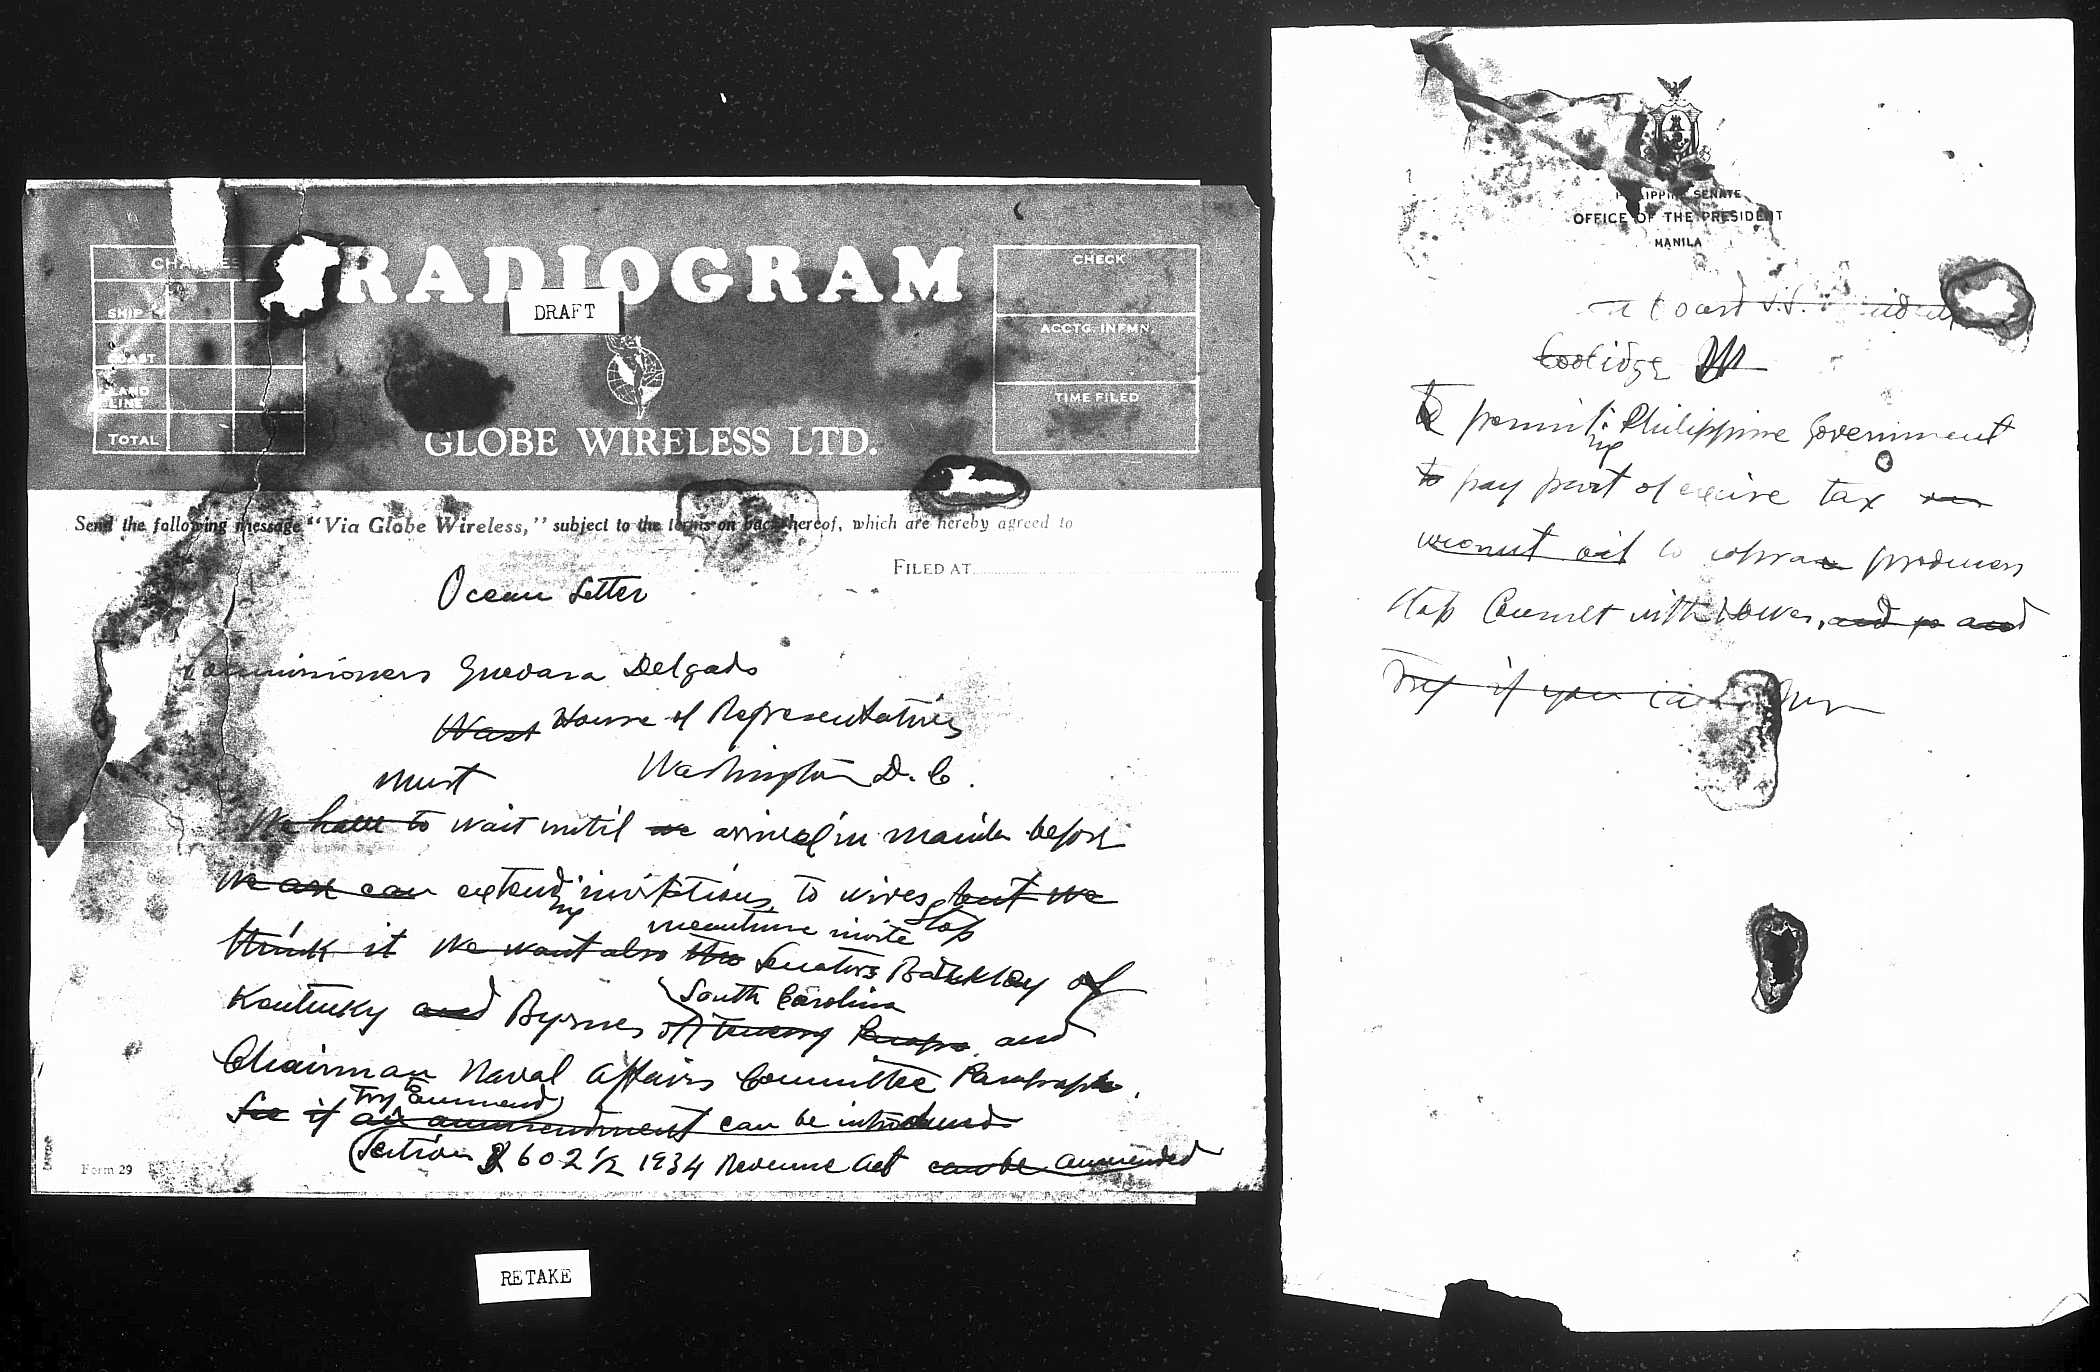 RADIOGRAM
DRAFT
CHARGES
SHIP
COAST
LAND LINE
TOTAL
CHECK
ACCTG. INFMN.
TIME FILED
GLOBE WIRELESS LTD.
Send the following message "Via Globe Wireless," subject to the terms on back hereof, which are hereby agreed to
FILED AT
Ocean Letter
Commissioners Guevara Delgado
Wash House of Representatives
Washington D. C.
must
We have to wait until we arrival in Manila before
we ask can extending invitations to wives but we
stop
meantime invite
think it we want also the Senators Barkley of
South Carolina
Kentucky and Byrnes of and
Chairman Naval Affairs Committee Paragraph.
Try to ammend
See if an ammendment can be introduced
Section 602 1/2 1934 Revenue Act can be ammended
Form 29
RETAKE
PHILIPPINE SENATE
OFFICE OF THE PRESIDENT
MANILA
aboard S.S.
Coolidge
To permitting Philippine Government
to pay part of excise tax on
coconut oil to copra producers
stop Consult with Hawes, and and
Try if you can